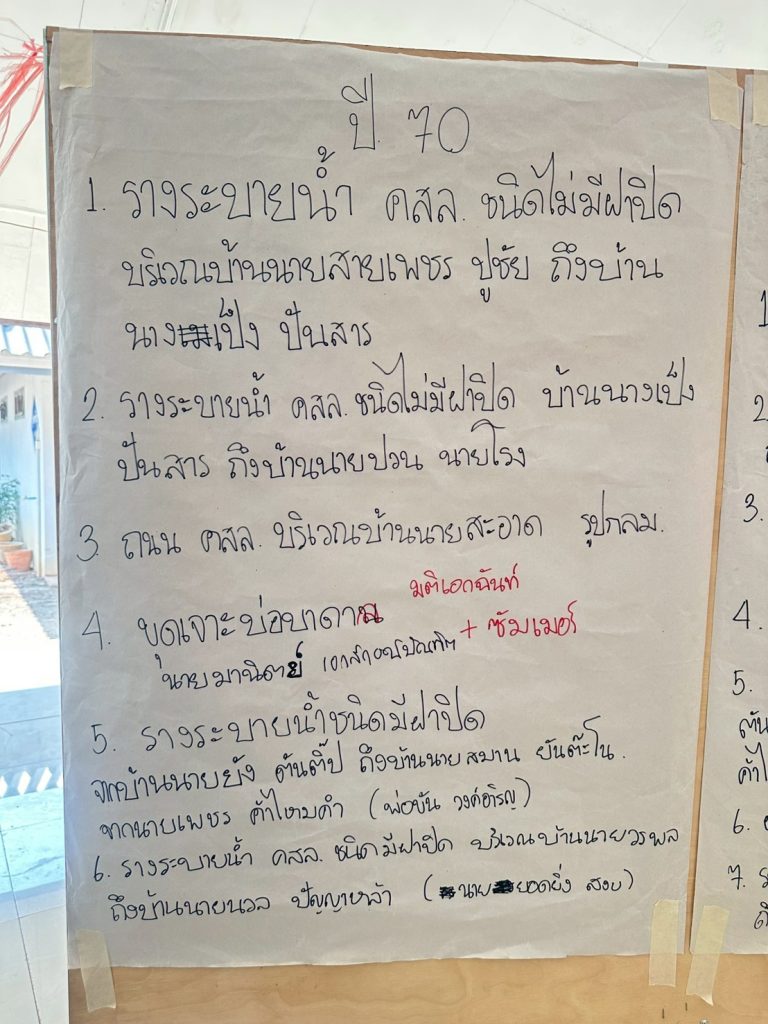 ปี 70
1. รางระบายน้ำ คสล. ชนิดไม่มีฝาปิด
บริเวณบ้านนายสายเพชร ปูชัย ถึงบ้าน
นางเป็ง ปันสาร
2. รางระบายน้ำ คสล. ชนิดไม่มีฝาปิด บ้านนางเป็ง
ปันสาร ถึงบ้านนายปวน นายโรง
3. ถนน คสล. บริเวณบ้านนายสะอาด รูปกลม.
มติเอกฉันท์
4. ขุดเจาะบ่อบาดาล + ซัมเมอร์
นายมานิตย์
5. รางระบายน้ำชนิดมีฝาปิด
จากบ้านนายยัง ต้นติ๊ป ถึงบ้านนายสมาน ยันต๊ะโน.
จากนายเพชร ค้าไหมคำ (พ่อขัน
6. รางระบายน้ำ คสล. ชนิดมีฝาปิด บริเวณบ้านนายวรพล
ถึงบ้านนายนวล ปัญญาหล้า (นาย ยอดยิ่ง
1
2
3.
4.
5.
6.
7.